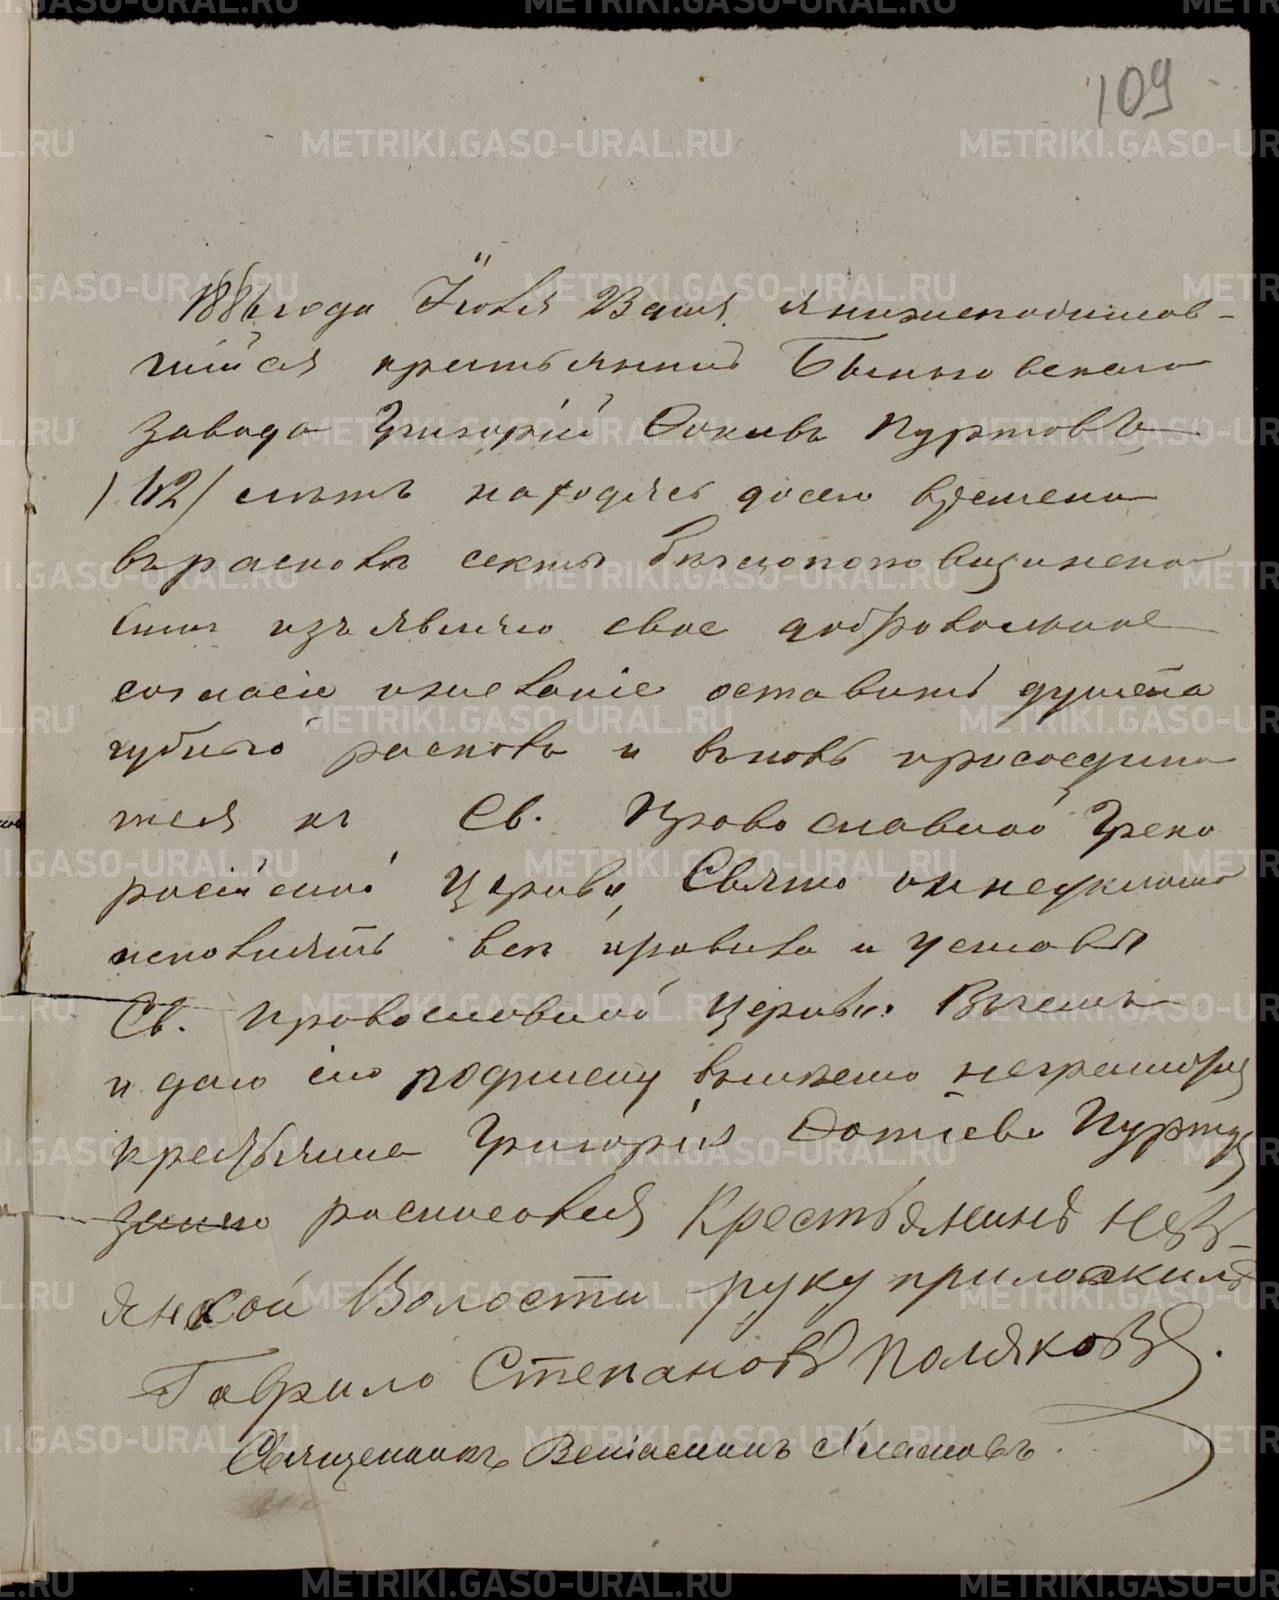 109
1886 года Іюня Вамъ я нижеподписав-
шійся крестьянинъ Быньговскаго
завода Григорій Фокивъ Пуртовъ
/62/ летъ находясь досего времени
въ расколе секты беглопоповщинско
симъ изъявляю свое добровольное
согласіе и желаніе оставить душепа
губнаго раскола и вновь присоедини
тся къ Св. Православной Греко
російской Церкви, Свято и ненарушимо
исполнять все правила и уставы
Св. Православной Церкви. Въ чемъ
и даю сію подписку вместо неграмотнаго
крестьянина Григорія Фотіева Пурто
росписовался Крестьянинъ Невь-
янской Волости руку приложилъ
Гаврило Степановъ Поляковъ.
Священникъ Веніаминъ
METRIKI.GASO-URAL.RU